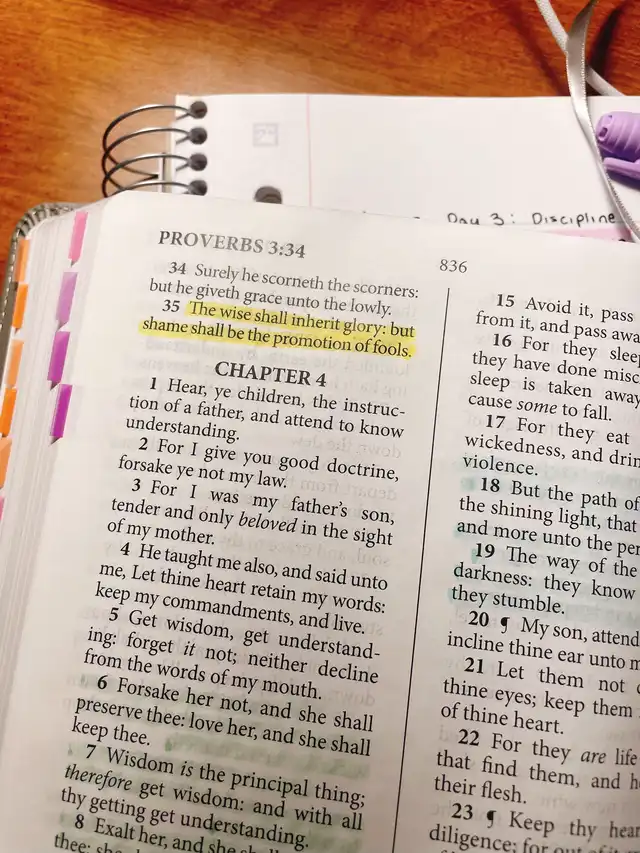 Day 3: Discipline
PROVERBS 3:34
836
34 Surely he scorneth the scorners:
but he giveth grace unto the lowly.
35 The wise shall inherit glory: but
shame shall be the promotion of fools.
CHAPTER 4
1 Hear, ye children, the instruc-
tion of a father, and attend to know
understanding.
2 For I give you good doctrine,
forsake ye not my law.
3 For I was my father's son,
tender and only beloved in the sight
of my mother.
4 He taught me also, and said unto
me, Let thine heart retain my words:
keep my commandments, and live.
5 Get wisdom, get understand-
ing: forget it not; neither decline
from the words of my mouth.
6 Forsake her not, and she shall
preserve thee: love her, and she shall
keep thee.
7 Wisdom is the principal thing;
therefore get wisdom: and with all
thy getting get understanding.
8 Exalt her, and she
thee:
15 Avoid it, pass
from it, and pass away
16 For they
they have done
sleep is taken away
cause some to fall.
17 For they eat
wickedness, and
violence.
18 But the path of
the shining light, that
and more unto the
19 The way of the
darkness: they know
they stumble.
20 ¶ My son, attend
incline thine ear unto
21 Let them not
thine eyes; keep them
of thine heart.
22 For they are life
that find them, and
their flesh.
23 ¶ Keep thy
diligence; for out of